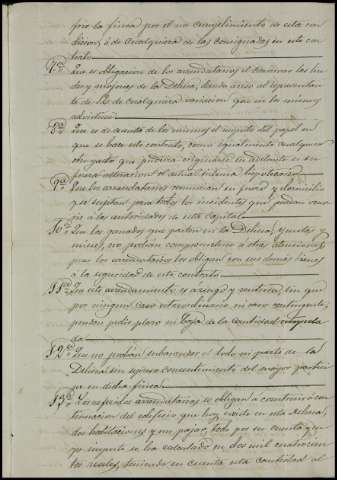 fero la finca por el no cumplimiento de esta con
dicion, ó de cualquiera de las consignadas en este con
trato
7ª Que es obligacion de los arrendatarios el conservar las lin
des y mojones de la Dehesa, dando aviso al representan
te de de cualquiera variacion que en los mismos
advirtiese
8ª Que es de cuenta de los mismos el importe del papel en
que se hace este contrato, como igualmente cualquier
otro gasto que pudiera originarse en adelante si su
friera alteracion el actual sistema hipotecario
9ª Que los arrendatarios renuncian su fuero y domicilio
y se sujetan para todos los incidentes que puedan ocur
rir á las autoridades de esta Capital
10ª Que los ganados que pasten en la Dehesa, y sustos
mismos, no podrán comprometerse á otras atenciones,
pues los arrendatarios los obligan con sus demás bienes
á la seguridad de este contrato
11ª Que este arrendamiento es á riesgo y ventura, sin que
por ningun caso extraordinario, ni otro contingente,
puedan pedir plazo ni baja de la cantidad estipula
da
12ª Que no podrán subarrendar el todo ni parte de la
Dehesa sin espreso consentimiento del mayor partici
pe en dicha finca
13ª Los espresados arrendatarios se obligan á construir á con
tinuacion del edificio que hoy existe en esta Dehesa,
dos habitaciones y un pajar, todo por su cuenta, cu
yo importe se ha calculado en dos mil cuatrocien
tos reales, teniendo en cuenta esta cantidad al